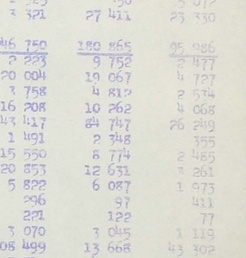 3 321 27 411 23 330
46 750 180 865 95 986
2 223 9 752 2 477
20 004 19 067 4 727
3 758 4 812 2 534
16 208 10 262 4 068
43 417 84 747 26 249
1 491 2 348 355
15 550 8 774 2 485
20 853 12 631 3 261
5 822 6 087 1 973
296 97 411
221 122 77
3 070 3 045 1 119
08 499 13 668 43 302